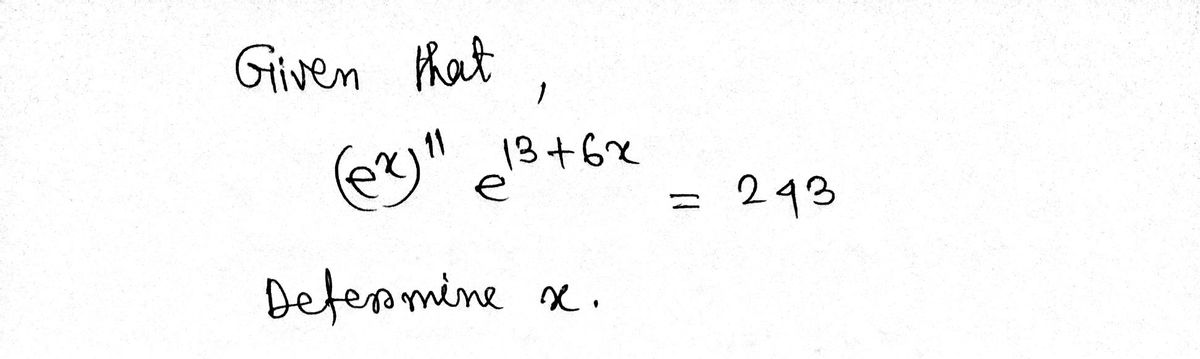 Given that,
(e^x)^11 e^13+6x = 243
Determine x.